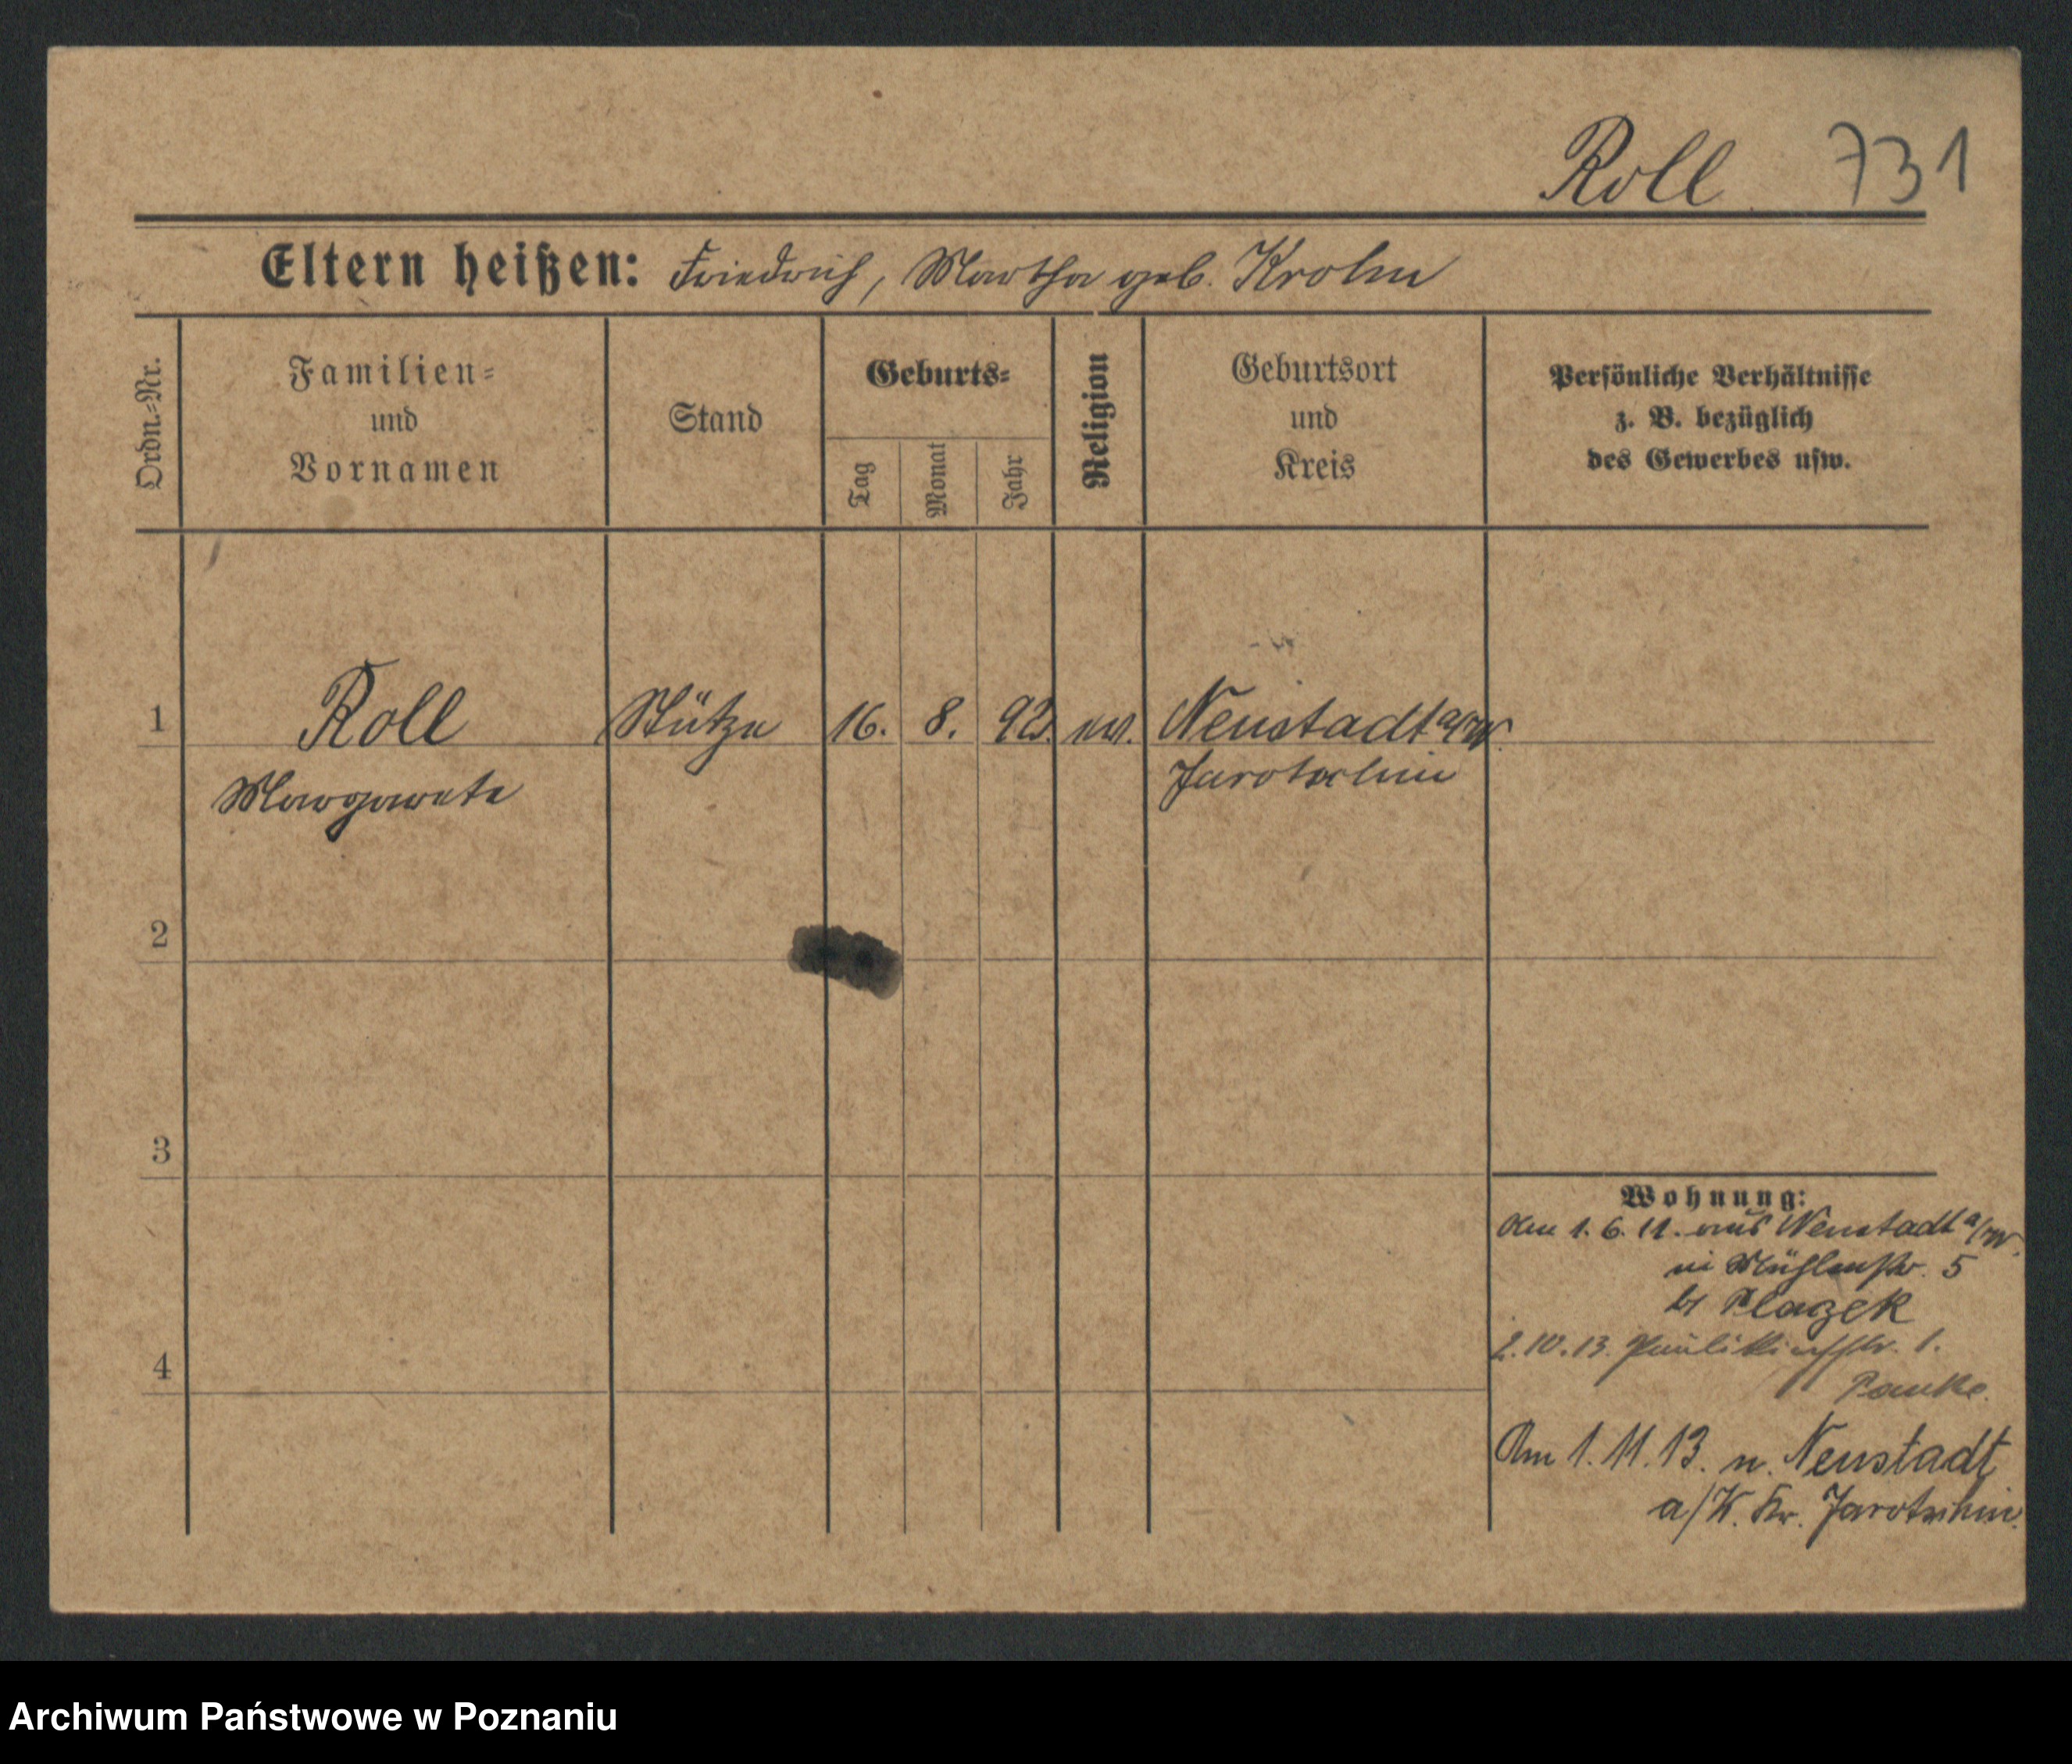 Roll 731
Eltern heißen: Friedrich, Martha geb. Krohn
Ordn.-Nr.
Familien-
und
Vornamen
Stand
Geburts-
Tag
Monat
Jahr
Religion
Geburtsort
und
Kreis
Persönliche Verhältnisse
z. B. bezüglich
des Gewerbes usw.
1 Roll Stütze 16. 8. 92. ev. Neustadt a/W.
Margarete Jarotschin
2
3
4
Wohnung:
Am 1.6.11. aus Neustadt a/W.
in Mühlenstr. 5
b/ Plazek
2.10.13. Paulikirchstr. 1.
Am 1.11.13. n. Neustadt
a/W. Kr. Jarotschin.
Archiwum Państwowe w Poznaniu